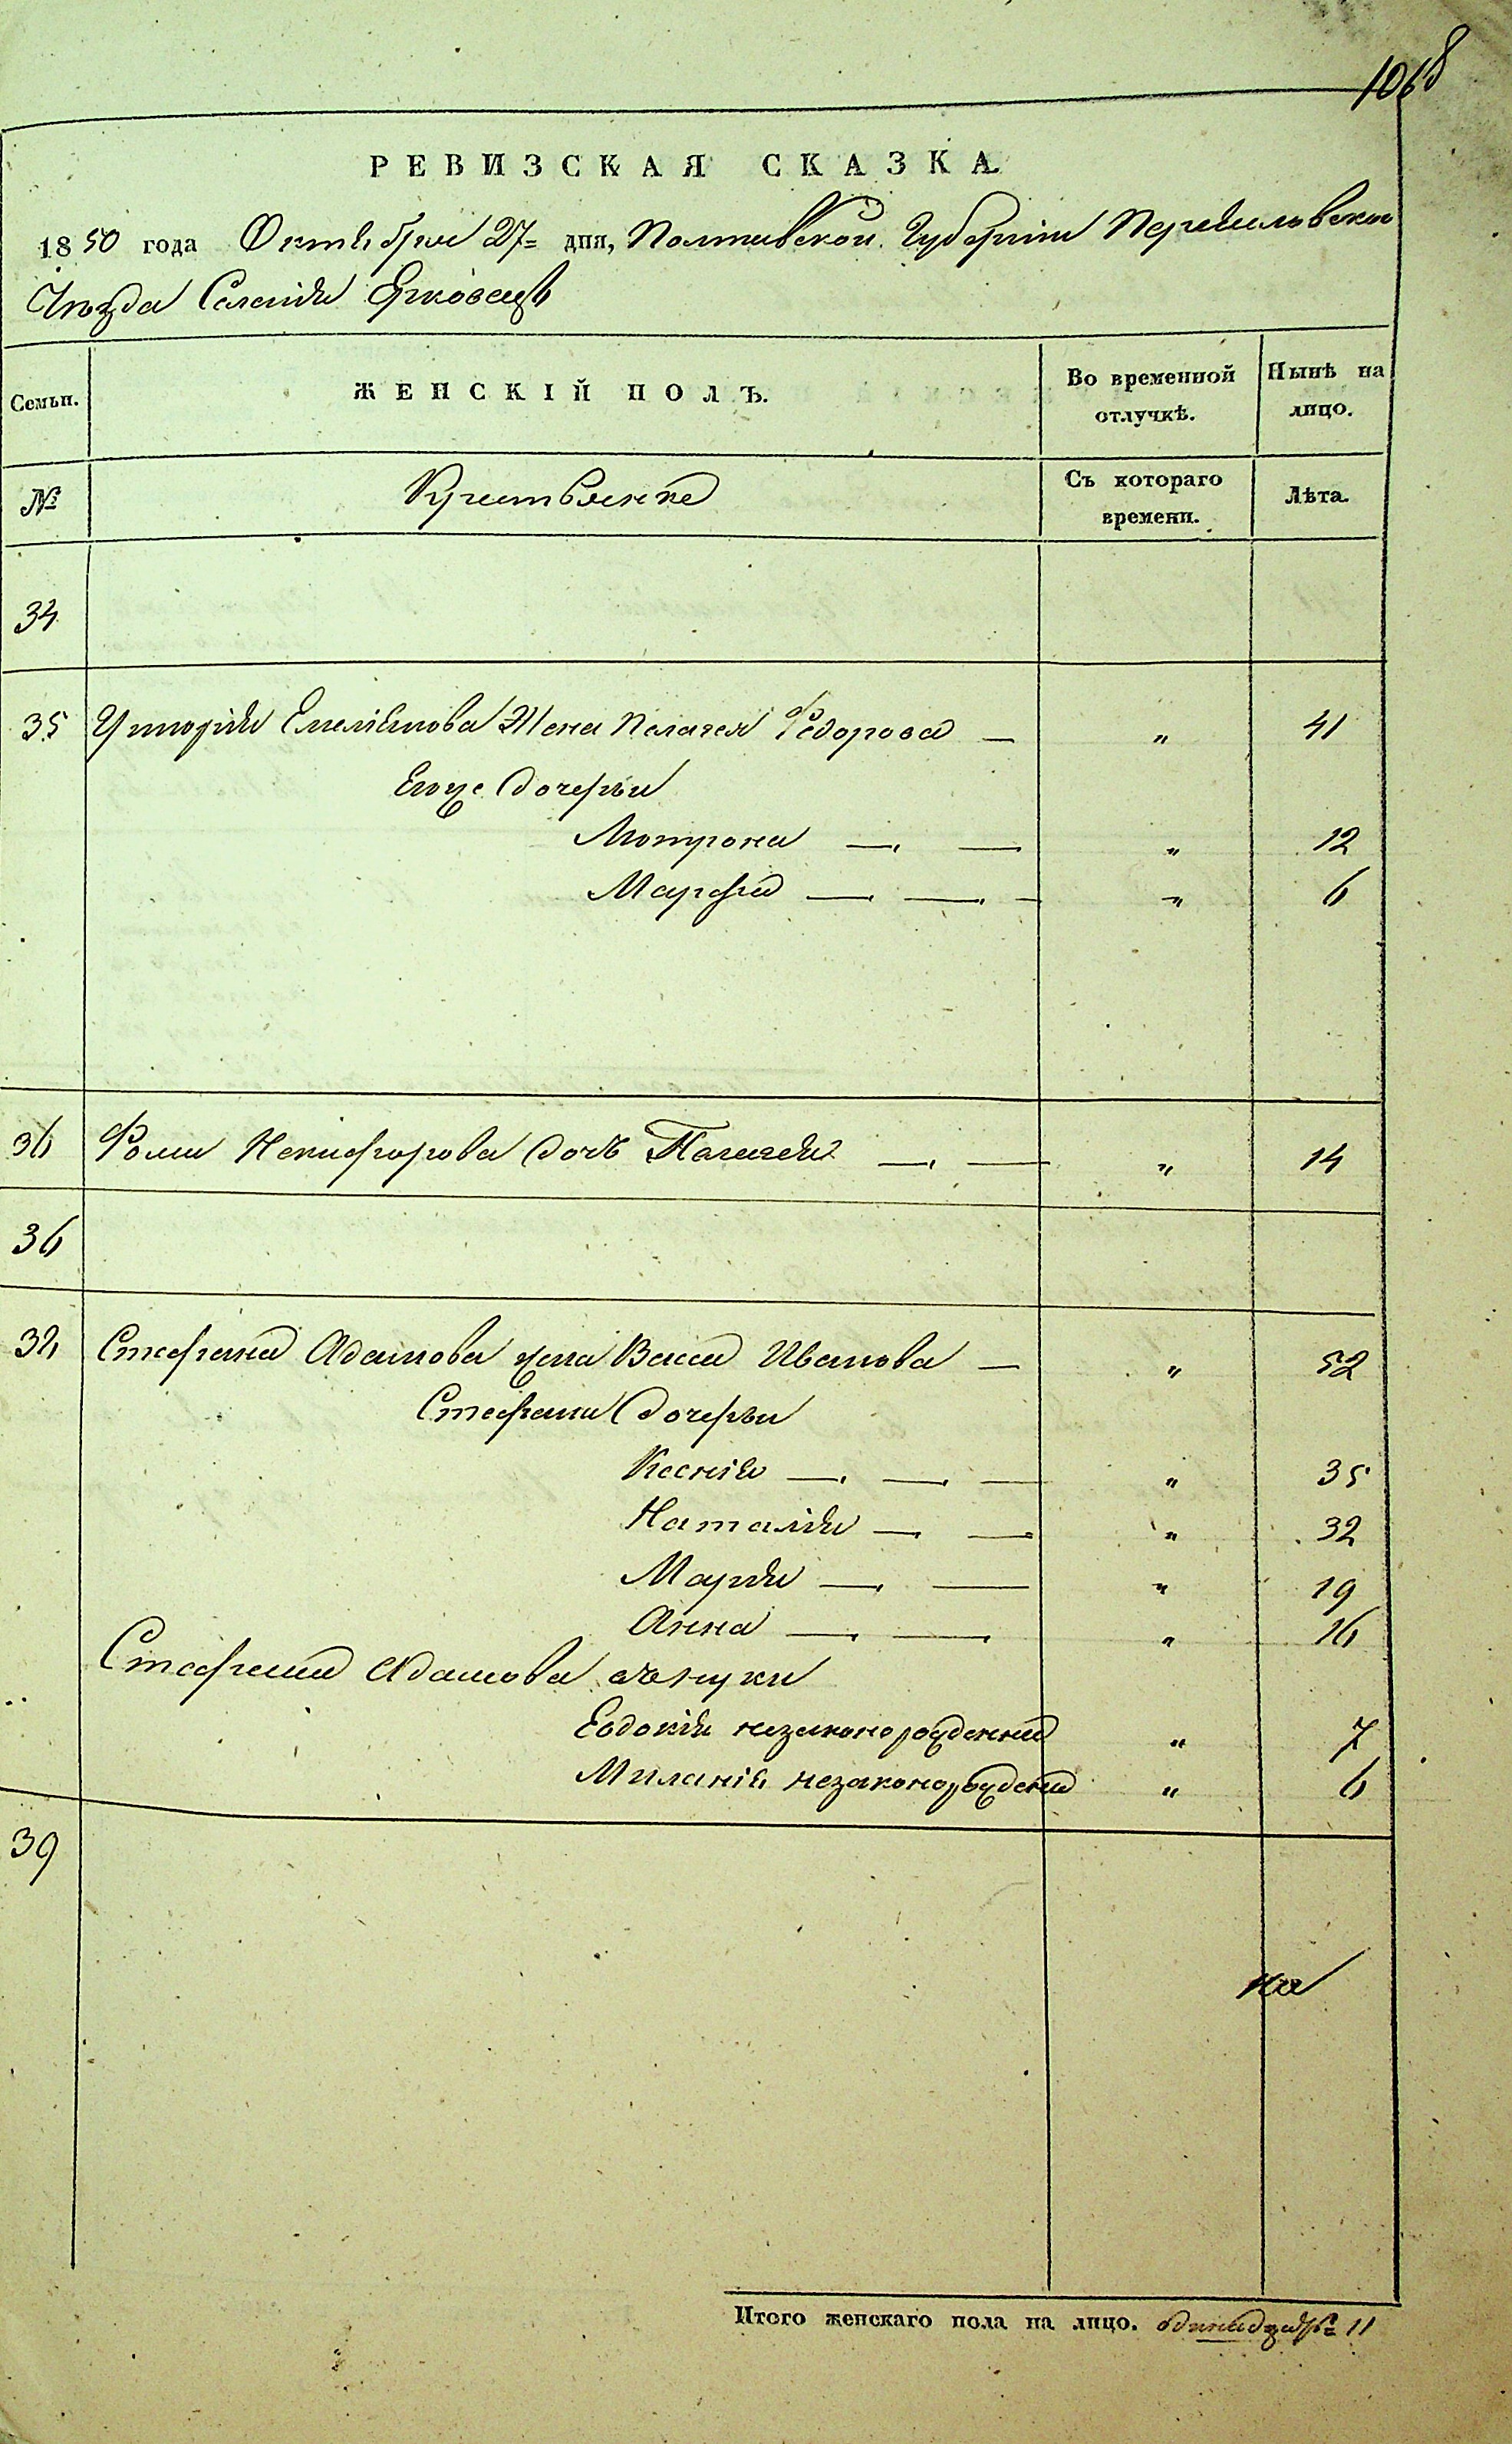 1068
РЕВИЗСКАЯ СКАЗКА
1850 года Октября 27 дня, Полтавской Губернiи Переяславского
Уѣзда Селенiя Ерковецъ
Семьи. ЖЕНСКІЙ ПОЛЪ. Во временной отлучкѣ. Нынѣ на лицо.
№ Съ котораго времени. Лѣта.
34
35 Емелiянова Жена Пелагея Федорова — „ 41
Его дочерьи
Мотрона — — „ 12
Марфа — — — „ 6
36 Фомы Никифорова дочь Пелагея — — „ 14
36
Стефана Адамова жена Васса Иванова — „ 52
Стефана дочерьи
Ксенiя — — — „ 35
Наталiя — — „ 32
Марiя — — „ 19
Анна — — „ 16
Стефана Адамова внуки
Евдокiя незаконорожденна „ 7
Миланiя незаконорождена „ 6
39
на
Итого женскаго пола на лицо. одинадцать 11